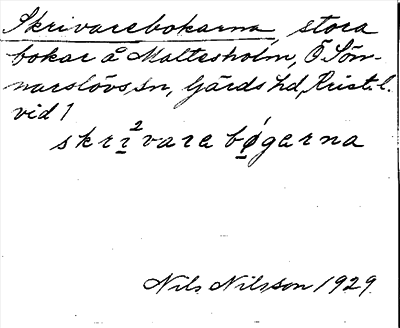 Skrivarebokarna, stora
bokar å Maltesholm, Ö Söm-
marslövs sn, Gärds hd, Krist. l.
vid 1
skri²vare bøgarna
Nils Nilsson 1929